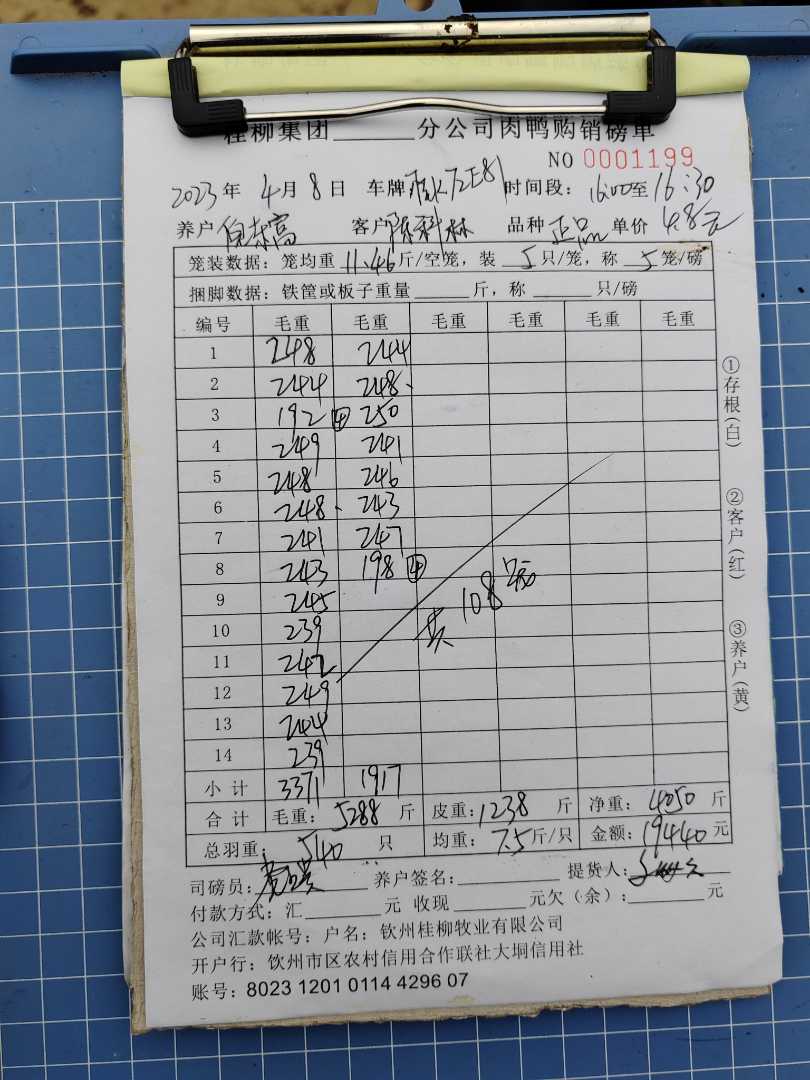 桂柳集团______分公司肉鸭购销磅单
NO 0001199
2023年 4月 8日 车牌 72E81 时间段: 16:00至16:30
养户 高 客户 陈科林 品种 正品 单价 4.8元
笼装数据: 笼均重 11.46斤/空笼, 装 5只/笼, 称 5笼/磅
捆脚数据: 铁筐或板子重量______斤, 称______只/磅
编号 毛重 毛重 毛重 毛重 毛重 毛重
1 248 244
2 244 248
3 192 ④ 250
4 249 241
5 248 246
6 248 243
7 241 247
8 243 198 ④
9 245
10 239
11 242
12 249
13 244
14 239
共108笼
小计 3371 1917
合计 毛重: 5288斤 皮重: 1238斤 净重: 4050斤
总羽重: 540只 均重: 7.5斤/只 金额: 19440元
司磅员: 养户签名:______ 提货人:
付款方式: 汇______元 收现______元欠(余):______元
公司汇款帐号: 户名: 钦州桂柳牧业有限公司
开户行: 钦州市区农村信用合作联社大垌信用社
账号: 8023 1201 0114 4296 07
①存根(白)
②客户(红)
③养户(黄)